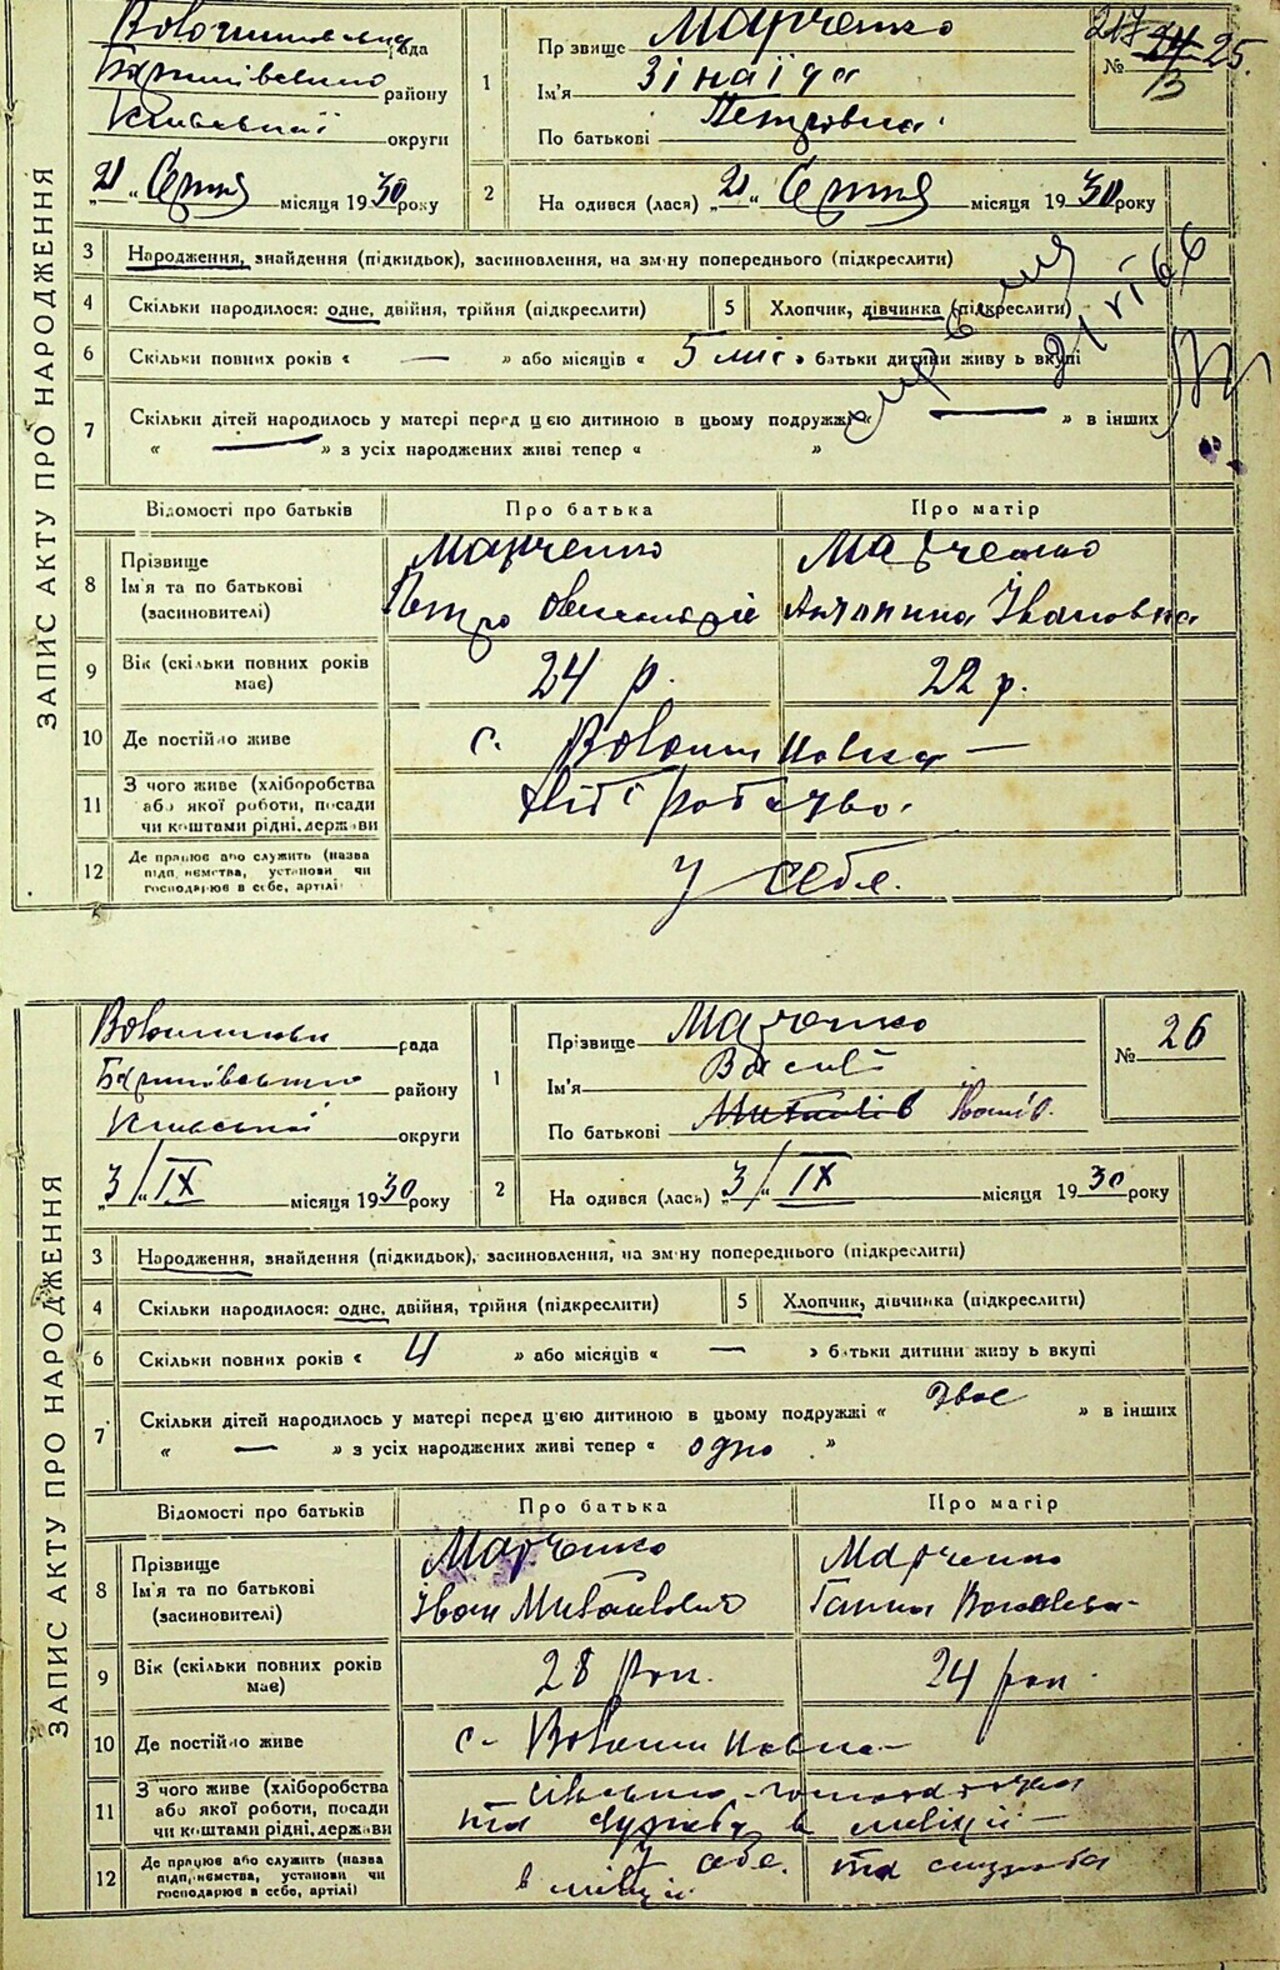 ЗАПИС АКТУ ПРО НАРОДЖЕННЯ
Волошинівська рада
Баришівського району
Київської округи
„21“ Серпня місяця 1930 року
1
Прізвище Марченко
Ім'я Зінаїда
По батькові Петровна
№ 25
2
Народився (лася) „21“ Серпня місяця 1930 року
3 Народження, знайдення (підкидьок), засиновлення, на зміну попереднього (підкреслити)
4 Скільки народилося: одне, двійня, трійня (підкреслити)
5 Хлопчик, дівчинка (підкреслити)
6 Скільки повних років « — » або місяців « 5 міс » батьки дитини живуть вкупі
7 Скільки дітей народилось у матері перед цією дитиною в цьому подружжі « — » в інших
« — » з усіх народжених живі тепер « »
Відомості про батьків Про батька Про матір
8 Прізвище Ім'я та по батькові (засиновителі)
Марченко Марченко
Петро Антонина Івановна
9 Вік (скільки повних років має) 24 р. 22 р.
10 Де постійно живе с. Волошиновка —
11 З чого живе (хліборобства або якої роботи, посади чи коштами рідні, держави
Хліборобство.
12 Де працює або служить (назва підприємства, установи чи господарює в себе, артілі)
У себе.
ЗАПИС АКТУ ПРО НАРОДЖЕННЯ
Волошинівська рада
Баришівського району
Київської округи
„3/“ IX місяця 1930 року
1
Прізвище Марченко
Ім'я Василь
По батькові Іванів.
№ 26
2
Народився (лася) „3/“ IX місяця 1930 року
3 Народження, знайдення (підкидьок), засиновлення, на зміну попереднього (підкреслити)
4 Скільки народилося: одне, двійня, трійня (підкреслити)
5 Хлопчик, дівчинка (підкреслити)
6 Скільки повних років « 4 » або місяців « — » батьки дитини живуть вкупі
7 Скільки дітей народилось у матері перед цією дитиною в цьому подружжі « двоє » в інших
« — » з усіх народжених живі тепер « одно »
Відомості про батьків Про батька Про матір
8 Прізвище Ім'я та по батькові (засиновителі)
Марченко Марченко
Іван Михайлович Ганна
9 Вік (скільки повних років має) 28 рок. 24 рок.
10 Де постійно живе с. Волошиновка —
11 З чого живе (хліборобства або якої роботи, посади чи коштами рідні, держави
та служба в міліції —
12 Де працює або служить (назва підприємства, установи чи господарює в себе, артілі)
У себе. та служба
в міліції